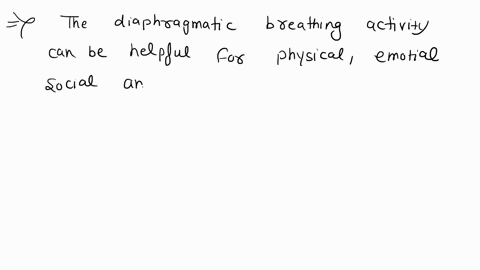 => The diaphragmatic breathing activity
can be helpful for physical, emotial
social an